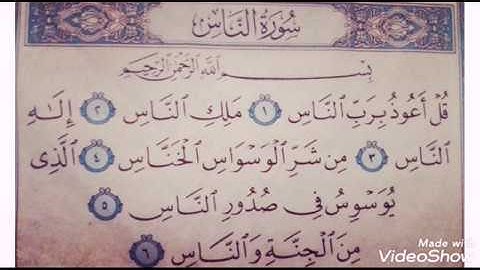 سُورَةُ النَّاسِ
بِسْمِ اللَّهِ الرَّحْمَٰنِ الرَّحِيمِ
قُلْ أَعُوذُ بِرَبِّ ٱلنَّاسِ ١ مَلِكِ ٱلنَّاسِ ٢ إِلَٰهِ
ٱلنَّاسِ ٣ مِن شَرِّ ٱلْوَسْوَاسِ ٱلْخَنَّاسِ ٤ ٱلَّذِى
يُوَسْوِسُ فِى صُدُورِ ٱلنَّاسِ ٥
مِنَ ٱلْجِنَّةِ وَٱلنَّاسِ ٦
Made with
VideoShow